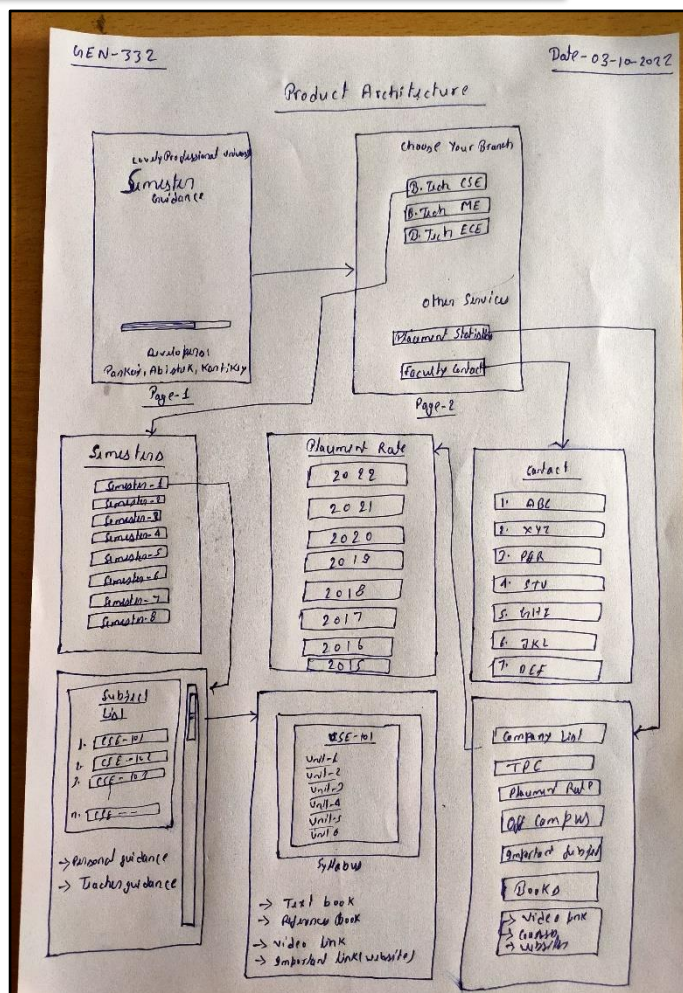 GEN-332
Date-03-10-2022
Product Architecture
Lovely Professional Univers
Semester
Guidance
Developers:
Pankaj, Abishek, Kartikey
Page-1
Choose Your Branch
B.Tech CSE
B.Tech ME
B.Tech ECE
Other Services
Placement Statistics
Faculty Contact
Page-2
Semesters
Semester-1
Semester-2
Semester-3
Semester-4
Semester-5
Semester-6
Semester-7
Semester-8
Placement Rate
2022
2021
2020
2019
2018
2017
2016
2015
Contact
1. ABC
2. XYZ
3. PQR
4. STU
5. GHI
6. JKL
7. DEF
Subject
List
1. CSE-101
2. CSE-102
3. CSE-103
n. CSE---
→ Personal guidance
→ Teacher guidance
CSE-101
Unit-1
Unit-2
Unit-3
Unit-4
Unit-5
Unit-6
Syllabus
→ Text book
→ Reference Book
→ Video Link
→ Important Link (websites)
Company List
TPC
Placement Rate
Off Campus
Important Subject
Books
→ Video Link
→ websites